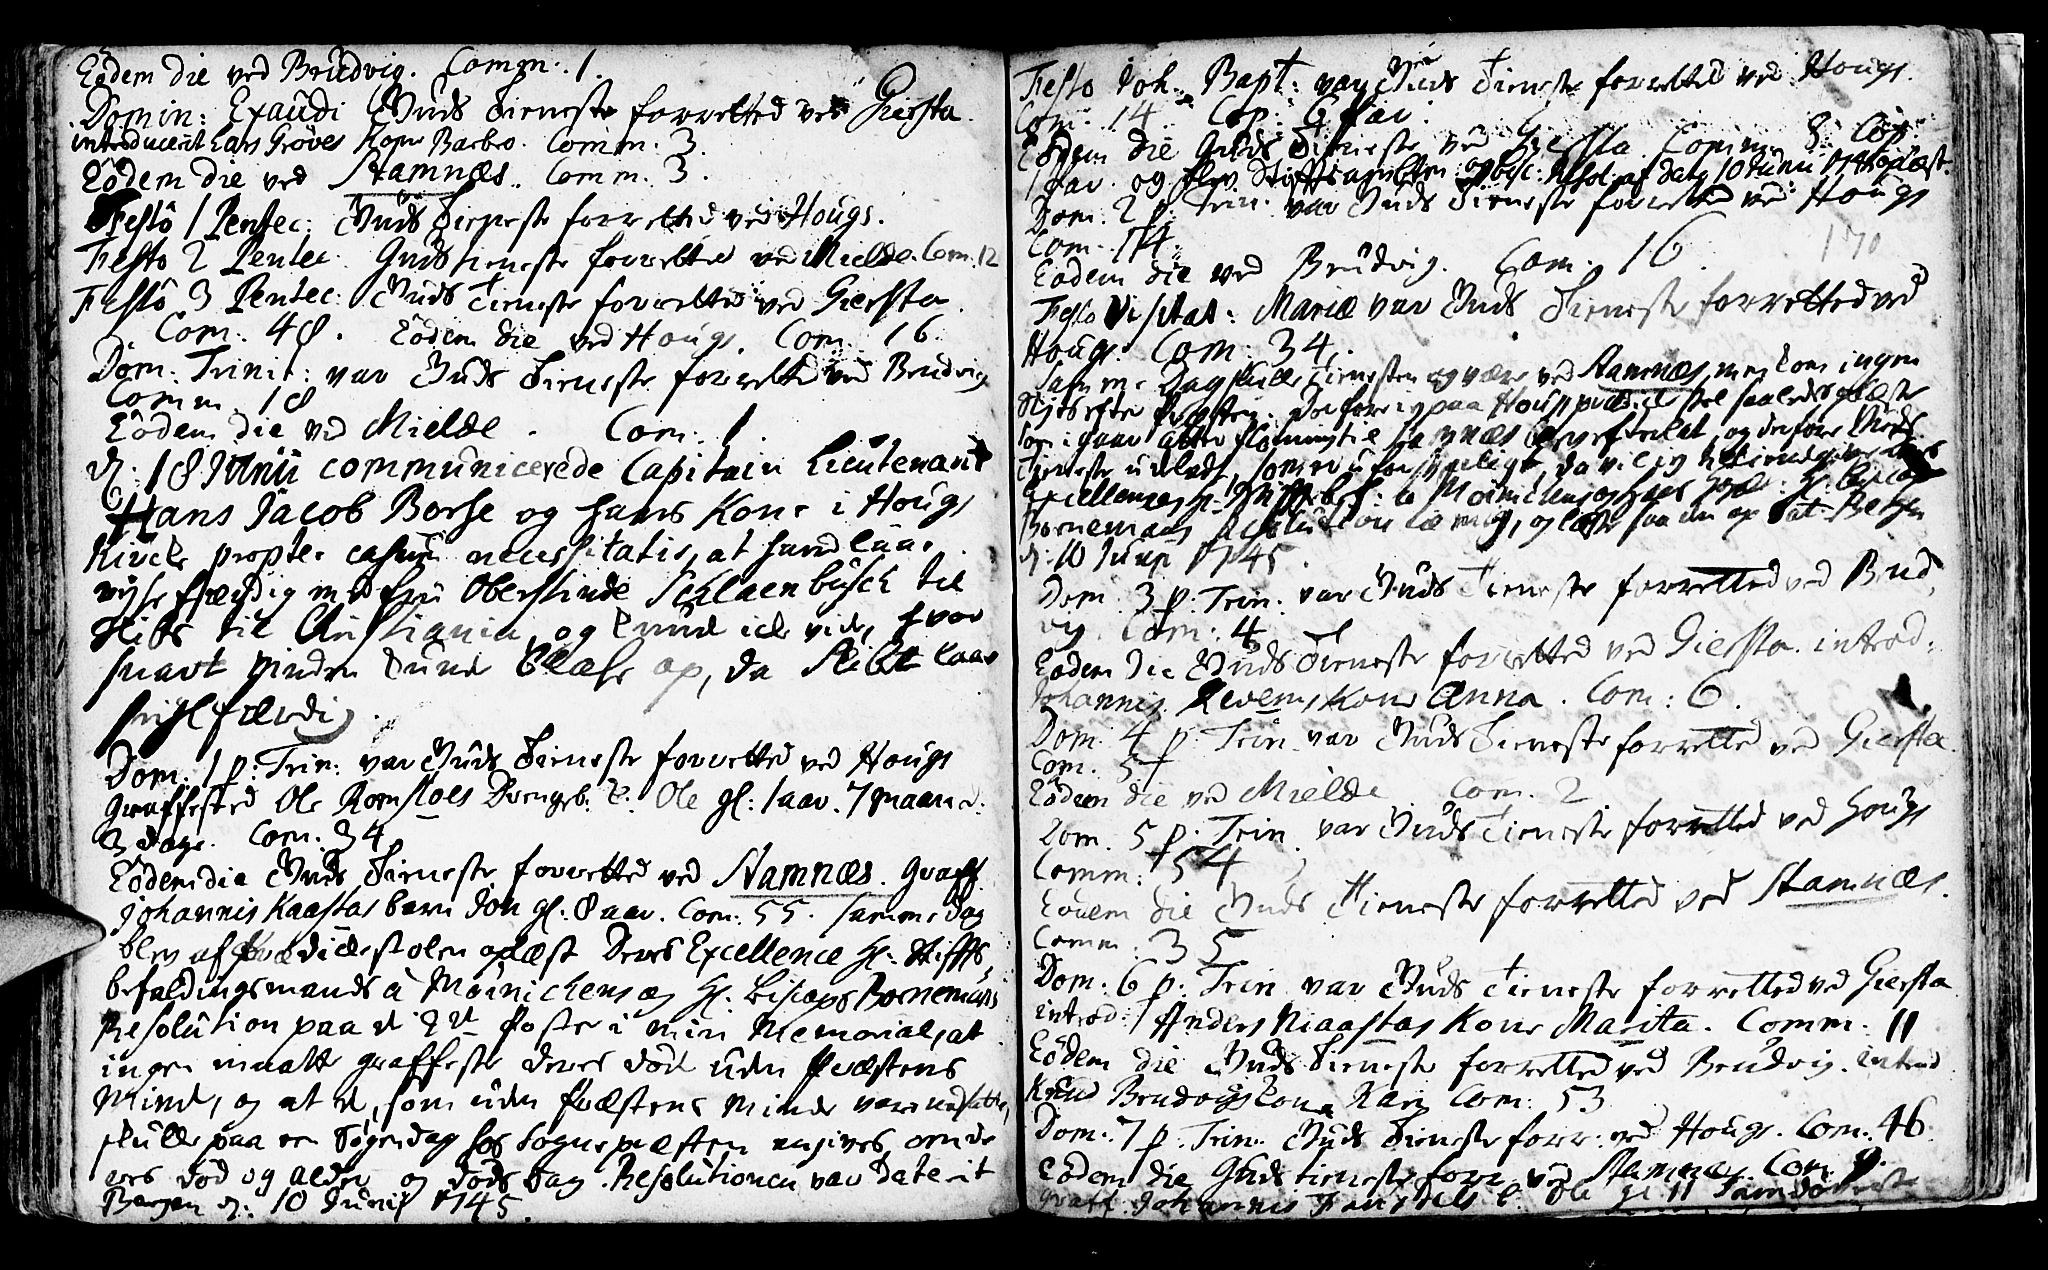 Eodem die ved Brudvig. Comm: 1.
Domin: Exaudi Guds tieneste forretted ved Giersta.
introducerit Lars Gröves Kone Barbro. Comm: 3.
Eodem die ved Stamnæs. Comm. 3.
Festo 1 Pentec: Guds tieneste forretted ved Hougs.
Festo 2 Pentec. Gudstieneste forretted ved Mielde. Com. 12
Festo 3 Pentec: Guds tieneste forretted ved Giersta
Com: 48. Eodem die ved Hougs. Com. 16
Dom: Trinit: var Guds tieneste forretted ved Brudvig
Comm 18
Eodem die ved Mielde. Com: 1.
d: 18 Junii communicerede Capitain Lieutenant
Hans Jacob Borse og hans Kone i Hougs
Kircke propter casum necessitatis, at hand laae
rejse færdig med fru Oberstinde Schlaenbusch til
Skibs til Christiania, og kunde icke vide, hvor
snart vinden kunde blæse op, da Skibet laae
seigl færdig.
Dom: 1 p: Trin: var Guds tieneste forretted ved Hougs
Graffested Ole Drengeb. Ole gl: 1 aar. 7 maan.
3 dage. Com: 34
Eodem die Guds tieneste forretted ved Stamnæs. Graff.
Johannis Kaastas barn Jon gl: 8 aar. Com: 55. samme dag
blev af Prædickestolen oplæst Deres Excellence Hr: Stiffts
befaldingsmands à Möinichens og Hr. Biscops Bornemans
Resolution paa d 2de Poster i min Memorial, at
ingen maatte graffeste deres död uden Præstens
Minde, og at d, som uden Præstens Minde vare nedsatte,
skulle paa en Sögnedag hos Sognepræsten angives, om de
res död og alder og döds dag. Resolutionen var daterit
Bergen d: 10 Junij 1745.
Festo Joh: Bapt: var Guds tieneste forretted ved Hougs.
Com: 14. Cop: 6 Par.
Eodem die Guds tieneste ved Giersta. Comm: 8. Cop
1 Par. og blev Stiftsamptm og bisc: Resol: af dato 10 Junii 1745 oplæst.
Dom. 2 p. Trin: var Guds tieneste forretted ved Hougs
Com. 14.
170
Eodem die ved Brudvig. Com. 16.
Festo Visitat: Mariæ var Guds tieneste forretted ved
Hougs. Com: 34.
Samme Dag skulle tienesten og være ved Stamnæs, men kom ingen
Skyds efter Præsten.
Excellences Hr: Stiftbef: à Möinichens og
Bornemans Resolution
d: 10 Junij 1745.
Dom. 3 p. Trin: var Guds tieneste forretted ved Brud
vig. Com: 4
Eodem die Guds tieneste forretted ved Giersta. introd:
Johannis Kone Anna. Com: 6.
Dom: 4 p. Trin var Guds tieneste forretted ved Giersta
Com. 5
Eodem die ved Mielde Com. 2
Dom. 5 p. Trin. var Guds tieneste forretted ved Hougs
Comm: 54
Eodem die Guds tieneste forretted ved Stamnæs.
Comm: 35
Dom: 6 p. Trin var Guds tieneste forretted ved Giersta
introd: Anders Kone Marita. Comm: 11
Eodem die Guds tieneste forretted ved Brudvig. introd
Knud Brudvigs Kone Kari Com: 53
Dom: 7 p. Trin. Guds tieneste forr: ved Hougs. Com: 46.
Eodem die Gudstieneste forr. ved Stamnæs. Com. 9.
graff. Johannis